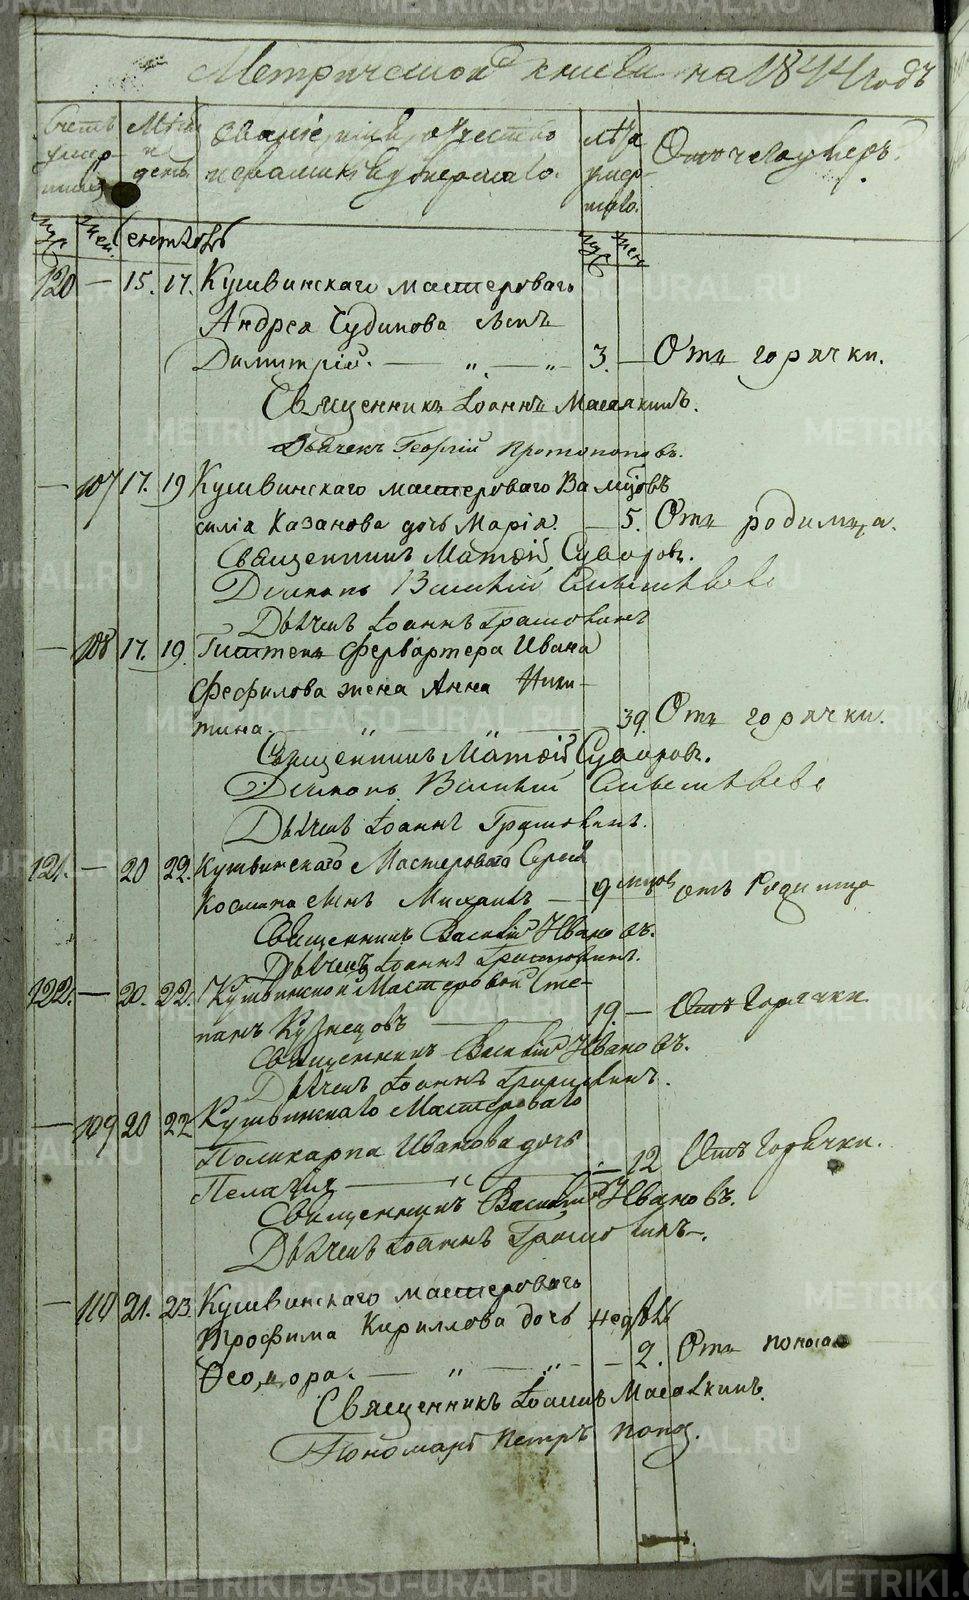 Метрической книги на 1844 годъ
Счетъ умер- шихъ
М-цъ и день
Званіе, имя, отчество и фамилія умершаго.
лѣта умер- шаго.
Отъ чего умеръ.
муж. жен. Сентябрь муж. жен.
120 — 15. 17. Кушвинскаго мастероваго
Андрея Чудинова сынъ
Димитрій. — „ — „ — 3. — Отъ горячки.
Священникъ Іоаннъ Масалкинъ.
Дьячекъ Георгій Протопоповъ.
— 107 17. 19 Кушвинскаго мастероваго Ва- мцовъ
силія Казанова дочь Марія. — 5. Отъ родимца.
Священникъ Матѳій Суворовъ.
Діаконъ Василій
Дьячекъ Іоаннъ Грамолинъ
— 108 17. 19. Гиттен фервартера Ивана
Феофилова жена Анна Ники-
тина. — „ — „ — 39. Отъ горячки.
Священникъ Матѳій Суворовъ.
Діаконъ Василій
Дьячекъ Іоаннъ Грамолинъ.
121. — 20 22. Кушвинскаго Мастероваго Сергѣя
Косина сынъ Михаилъ — 9 мцовъ отъ Родимца
Священникъ Василій Ивановъ.
Дьячекъ Іоаннъ Грамолинъ.
122. — 20. 22. Кушвинской Мастеровой Сте-
панъ Кузнецовъ — 19. — Отъ Горячки.
Священникъ Василій Ивановъ.
Дьячекъ Іоаннъ Грамолинъ.
— 109 20 22 Кушвинскаго Мастероваго
Поликарпа Иванова дочь
Пелагія — „ — 12 Отъ Горячки.
Священникъ Василій Ивановъ.
Дьячекъ Іоаннъ Грамолинъ.
— 110 21. 23. Кушвинскаго мастероваго
Трофима Кириллова дочь недѣль
Ѳеодора. — „ — „ — 2. Отъ поноса
Священникъ Іоаннъ Масалкинъ.
Пономарь Петръ Поповъ.
METRIKI.GASO-URAL.RU